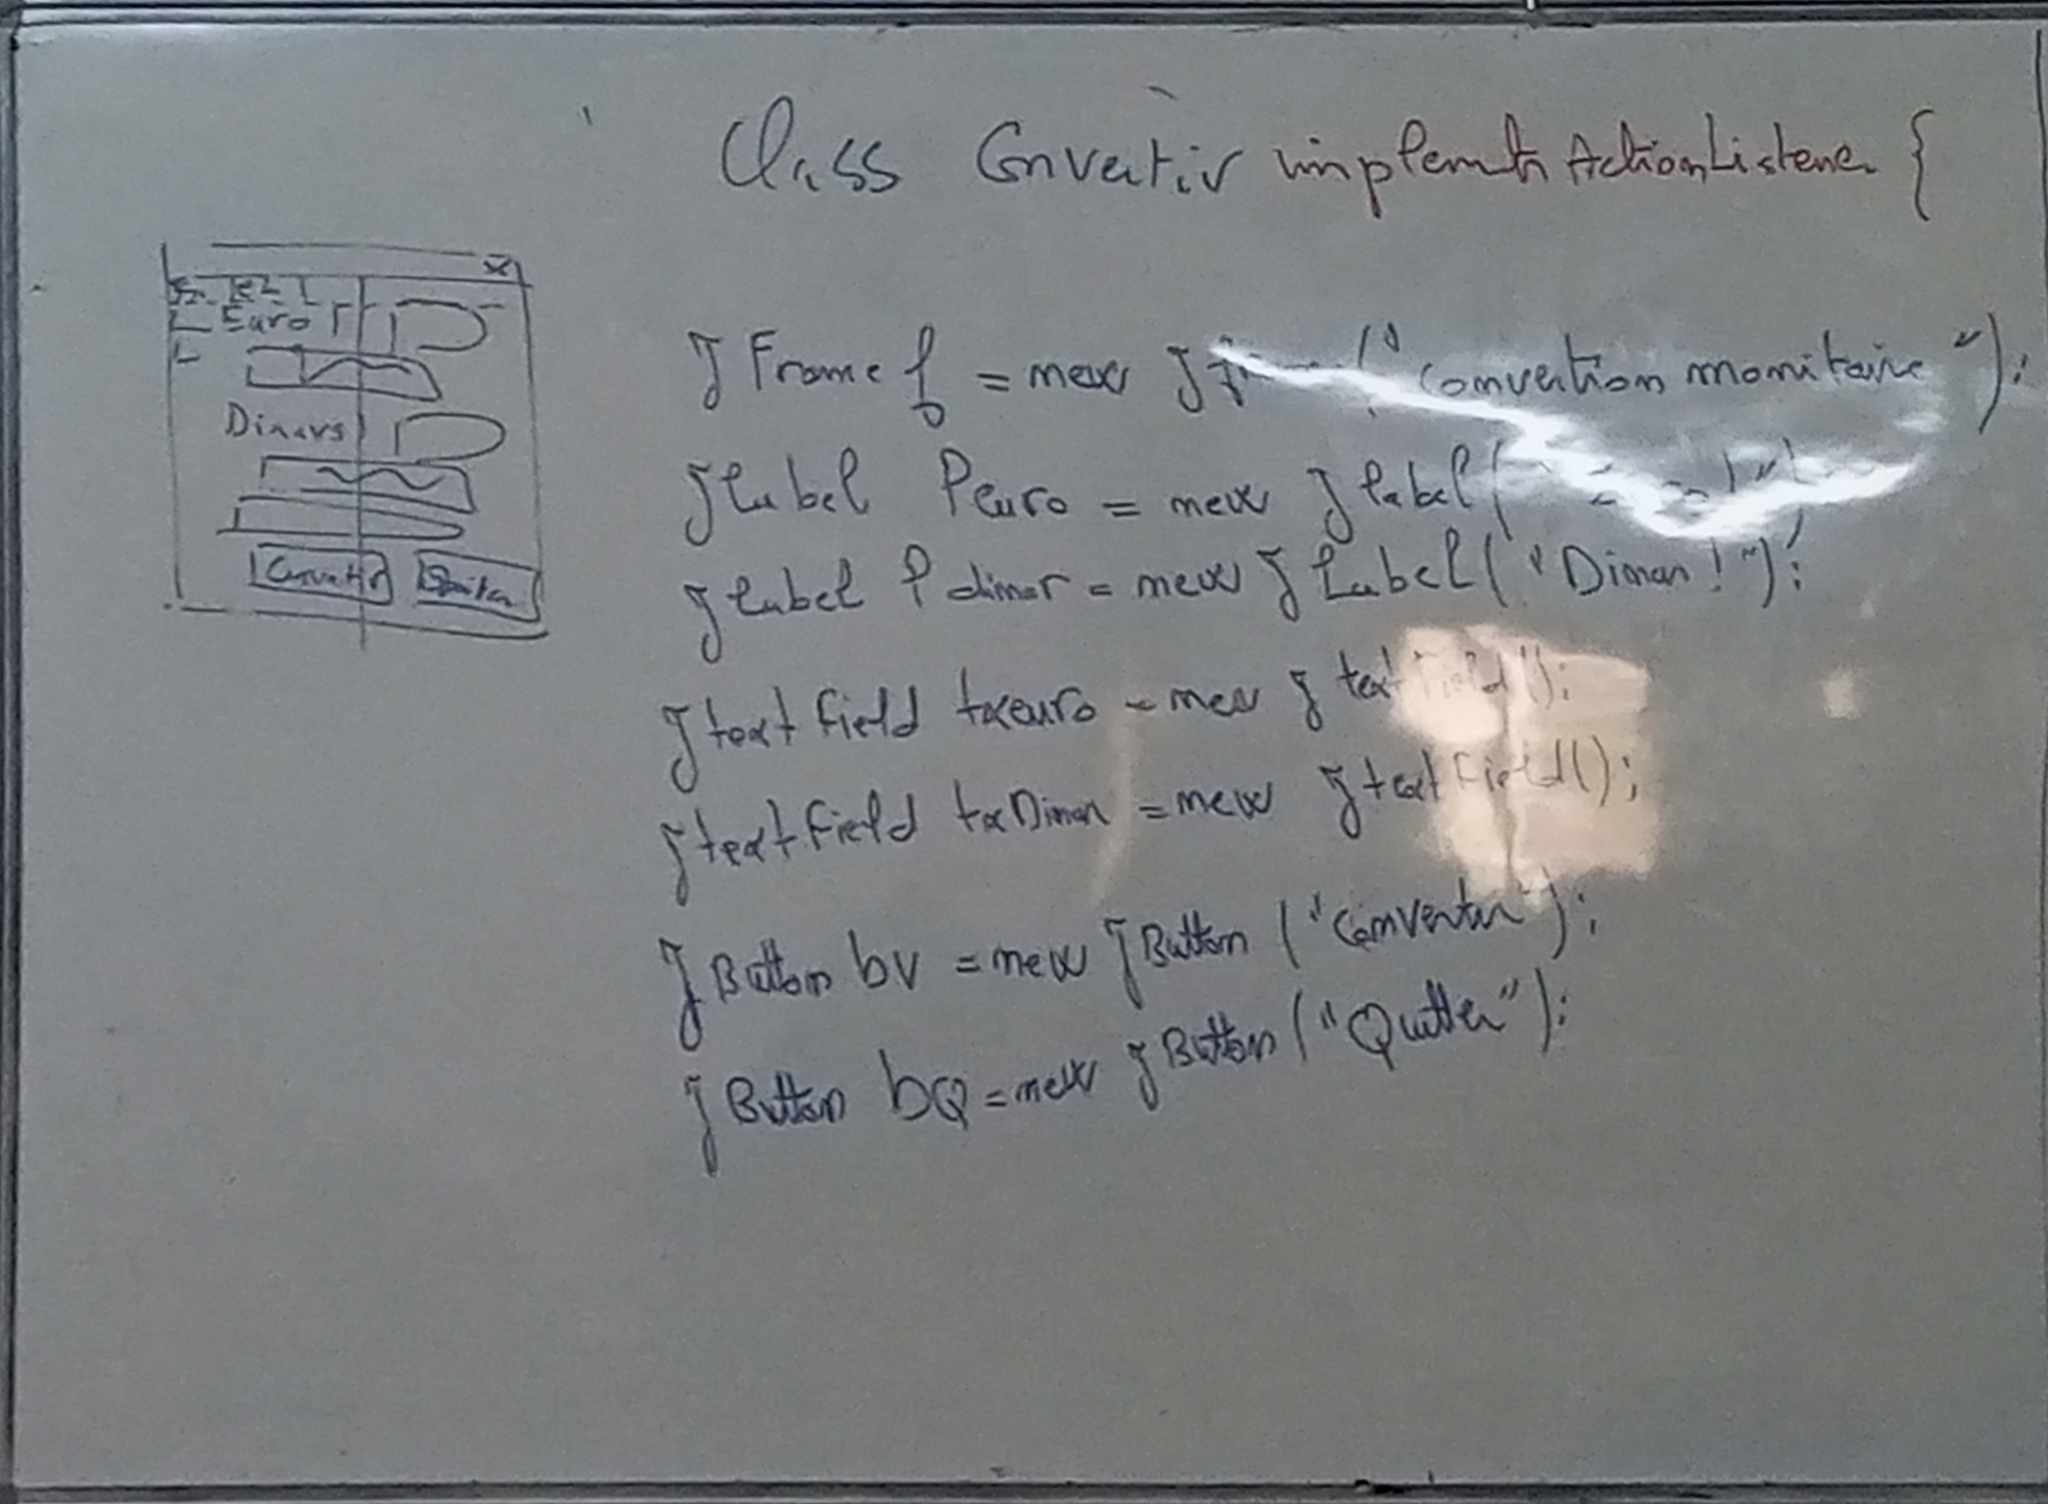 Class Convertir implements ActionListener {
Euro
Dinars
Convertir Quitter
JFrame f = new JFrame ("Convertion monitaire");
Jlabel leuro = new Jlabel("Euro!");
Jlabel ldinar = new JLabel("Dinar!");
Jtextfield txeuro = new JtextField();
Jtextfield txDinar = new JtextField();
JButton bv = new JButton ("Convertir");
JButton bQ = new JButton ("Quitter");